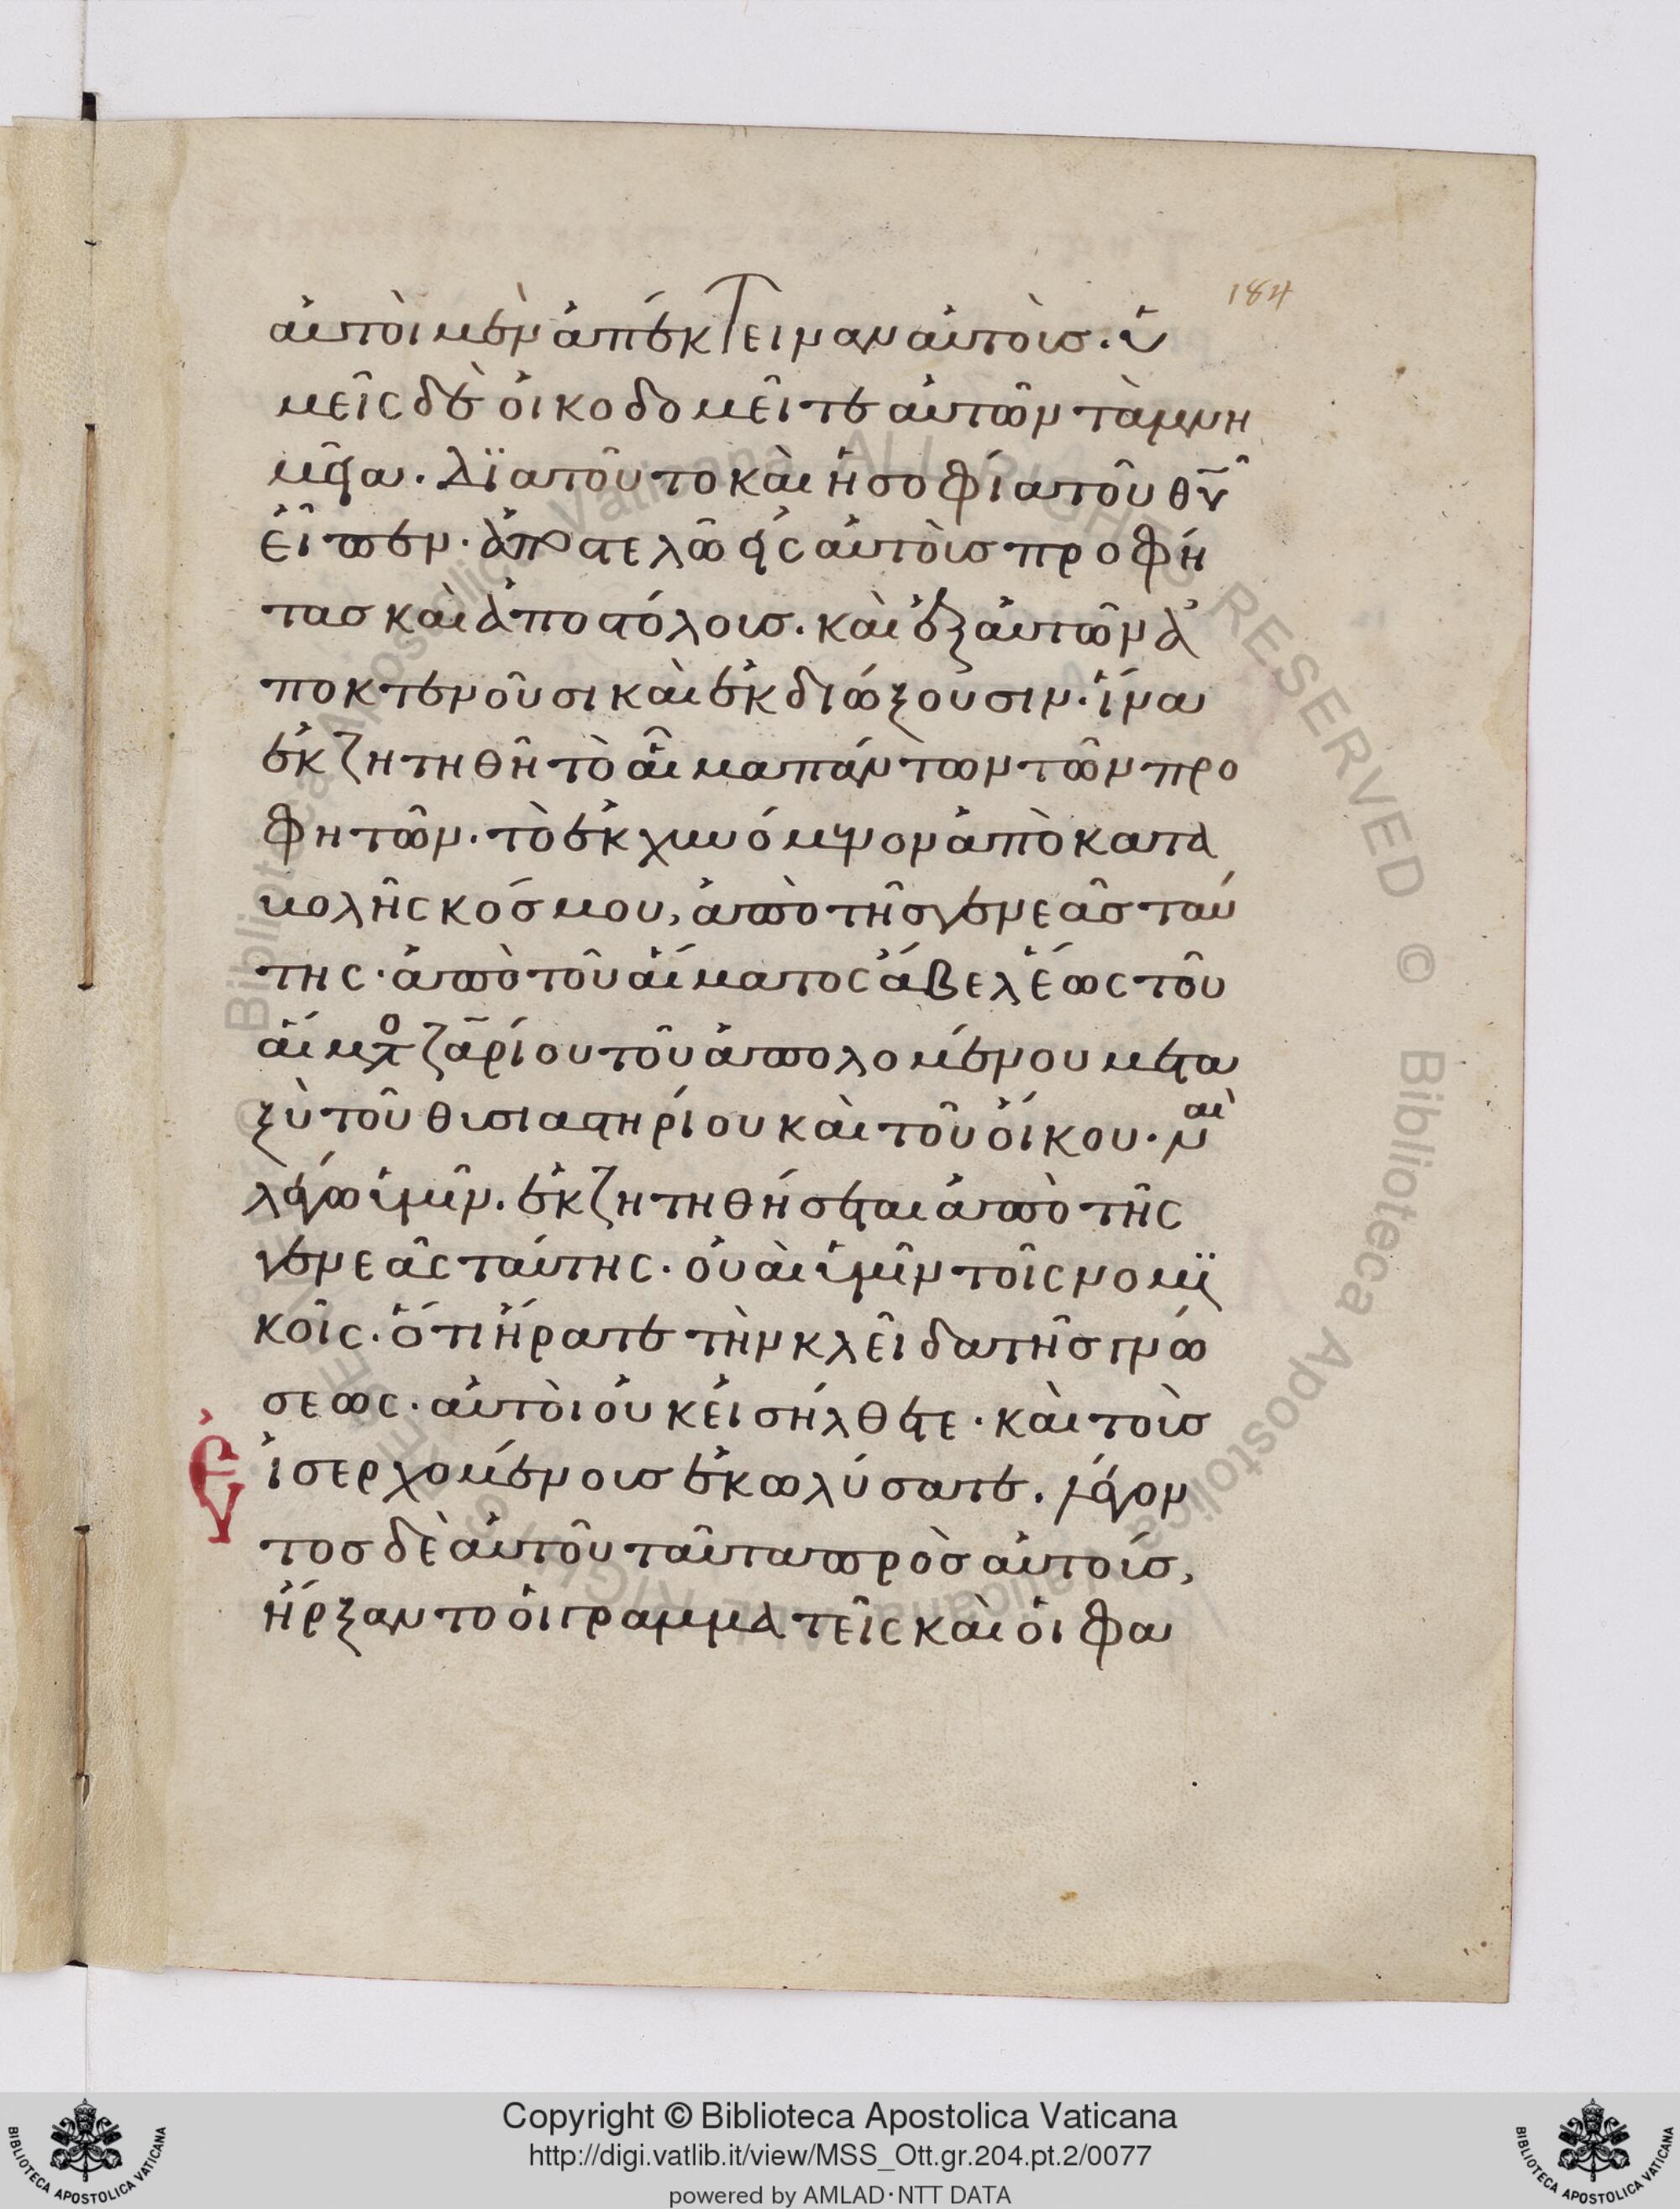 184
αὐτοὶ μὲν ἀπέκτειναν αὐτοὺσ· ὑ
μεῖς δὲ οἰκοδομεῖτε αὐτῶν τὰ μνη
μεῖα· Διατοῦτο καὶ ἡ σοφία τοῦ θ̅υ̅
εἶπεν· ἀποστελῶ εἰς αὐτοὺσ προφή
τασ καὶ ἀποστόλουσ· καὶ ἐξ αὐτῶν ἀ
ποκτενοῦσι καὶ ἐκδιώξουσιν· ἵνα
ἐκζητηθῆ τὸ αἷμα πάντων τῶν προ
φητῶν· τὸ ἐκχυνόμενον ἀπὸ κατα
βολῆς κόσμου, ἀπὸ τῆσ γενεᾶσ ταύ
της· ἀπὸ τοῦ αἵματος ἄβελ ἕως τοῦ
αἵμτο ζα̅ρίου τοῦ ἀπολομένου μετα
ξὺ τοῦ θυσιαστηρίου καὶ τοῦ οἴκου· ναὶ
λέγω ὑμῖν· ἐκζητηθήσεται ἀπὸ τῆς
γενεᾶς ταύτης· οὐαὶ ὑμῖν τοῖς νομϊ
κοῖς· ὅτι ἤρατε τὴν κλεῖδα τῆσ γνώ
σεως· αὐτοὶ οὐκ εἰσήλθετε· καὶ τοὺσ
Εἰσερχομένουσ ἐκωλύσατε· λέγον
τοσ δὲ αὐτοῦ ταῦτα πρὸσ αὐτούσ,
ἤρξαντο οἱ γραμματεῖς καὶ οἱ φα
Copyright © Biblioteca Apostolica Vaticana
http://digi.vatlib.it/view/MSS_Ott.gr.204.pt.2/0077
powered by AMLAD·NTT DATA
BIBLIOTECA APOSTOLICA VATICANA
BIBLIOTECA APOSTOLICA VATICANA